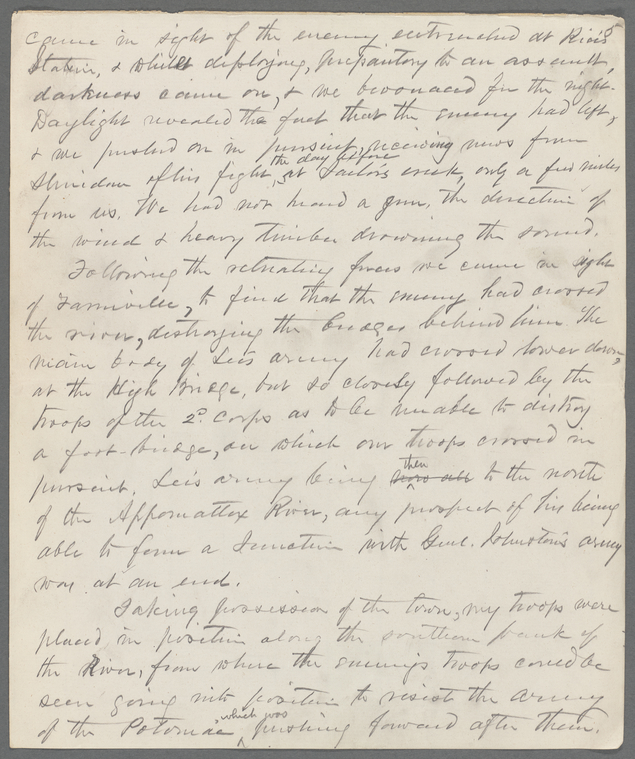 came in sight of the enemy entrenched at Rice's
Station, & while deploying, preparatory to an assault,
darkness came on, & we bivouaced for the night.
Daylight revealed the fact that the enemy had left,
& we pushed on in pursuit, receiving news from
Sheridan of his fight the day before at Sailor's creek, only a few miles
from us. We had not heard a gun, the direction of
the wind & heavy timber drowning the sound.
Following the retreating forces we came in sight
of Farmville, to find that the enemy had crossed
the river, destroying the bridges behind him. The
main body of Lee's army had crossed lower down,
at the High Bridge, but so closely followed by the
troops of the 2d. Corps as to be unable to distroy
a foot-bridge, on which our troops crossed in
pursuit. Lee's army being then to the north
of the Appomattox River, any prospect of his being
able to form a Junction with Genl. Johnston's army
was at an end.
Taking possession of the town, my troops were
placed in position along the southern bank of
the River, from where the enemy's troops could be
seen going into position to resist the Army
of the Potomac which was pushing forward after them.